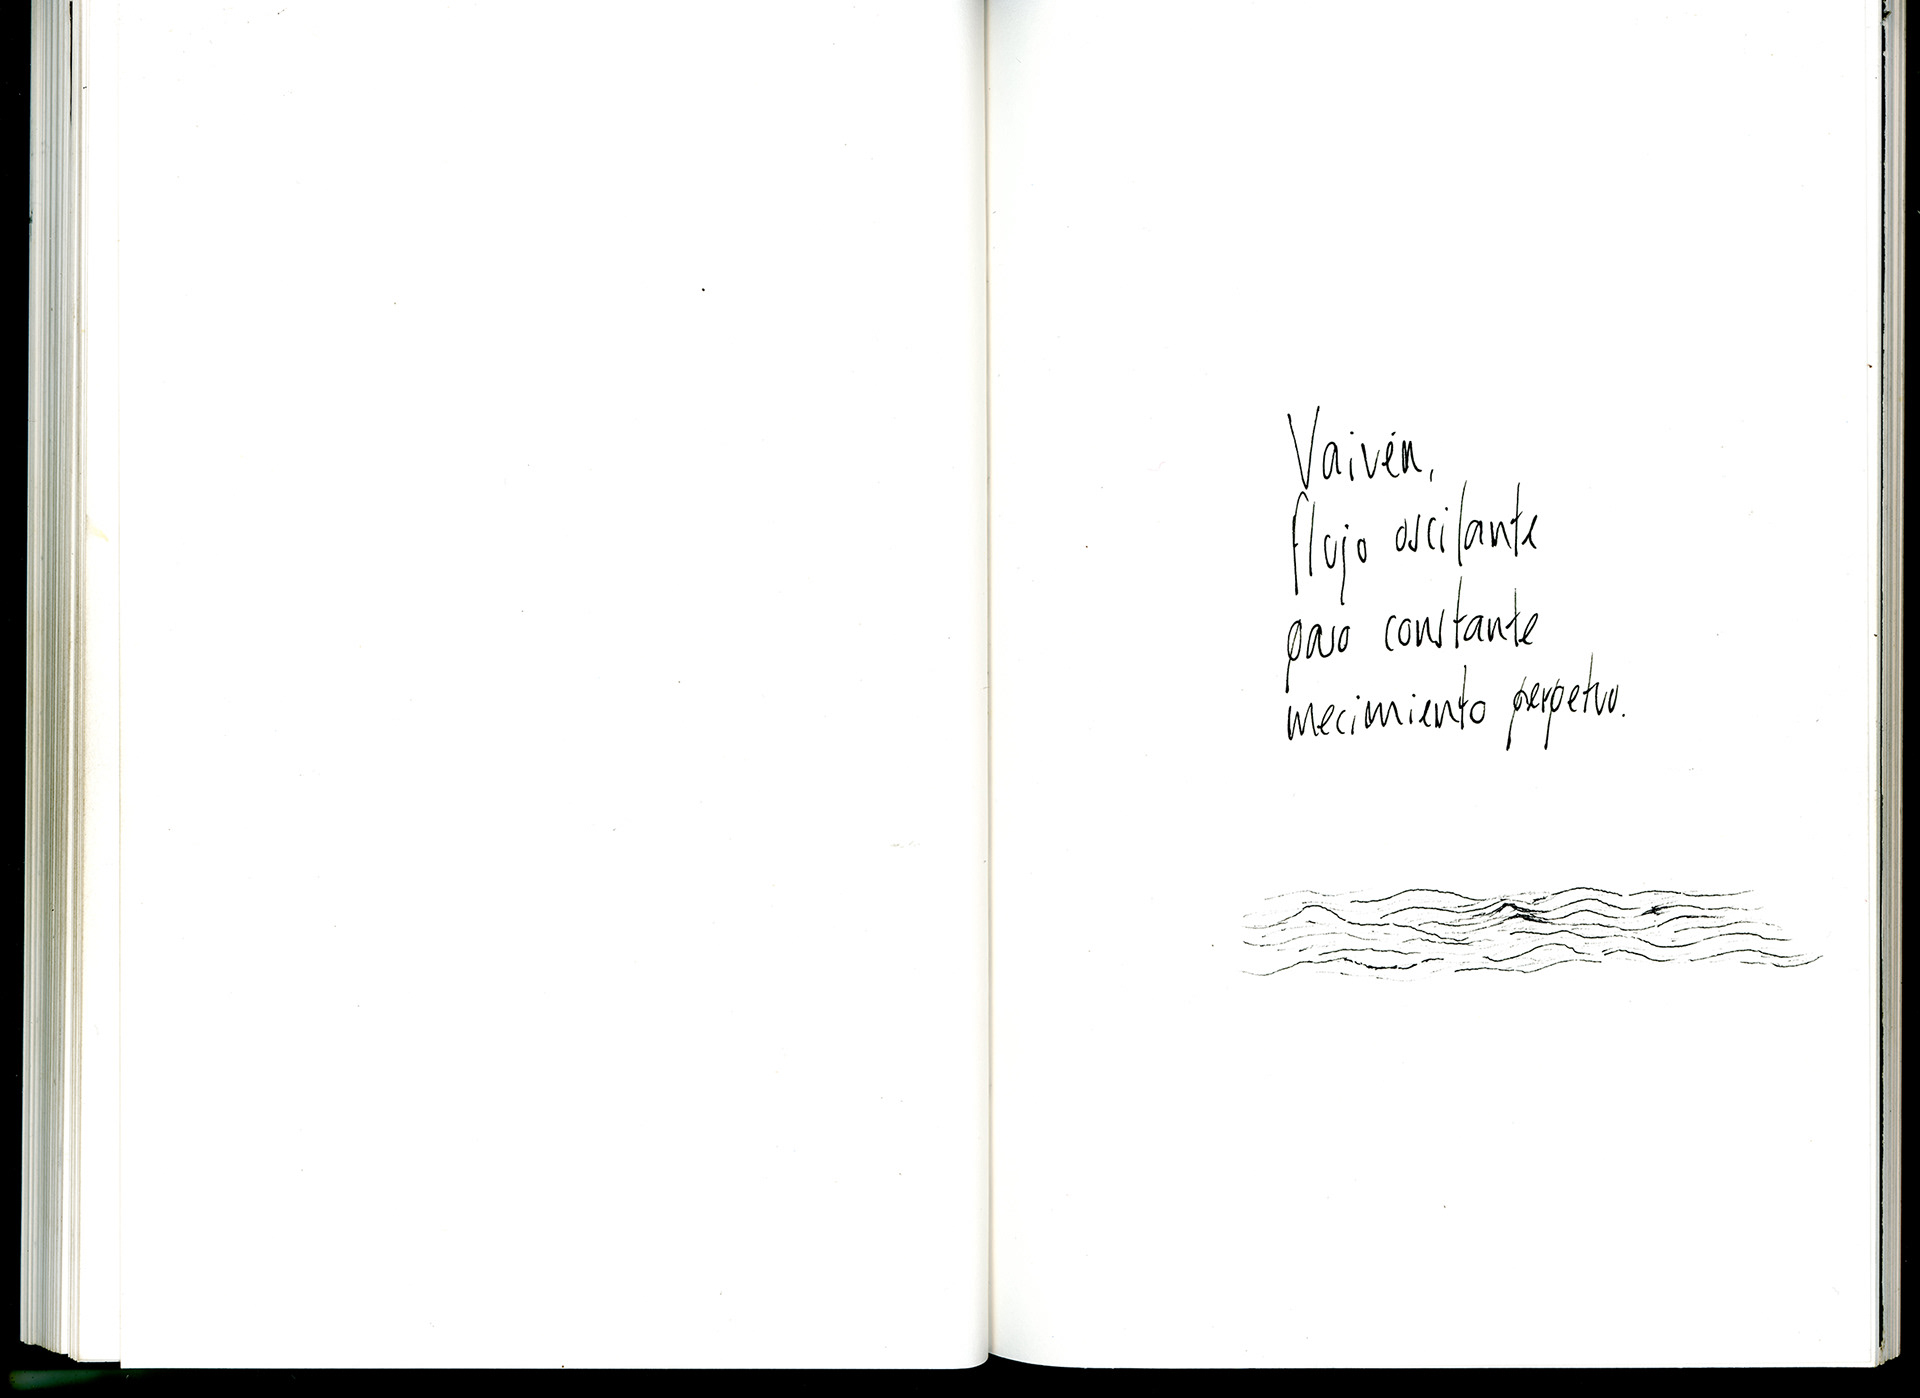 Vaivén,
flujo oscilante
paso constante
mecimiento perpetuo.